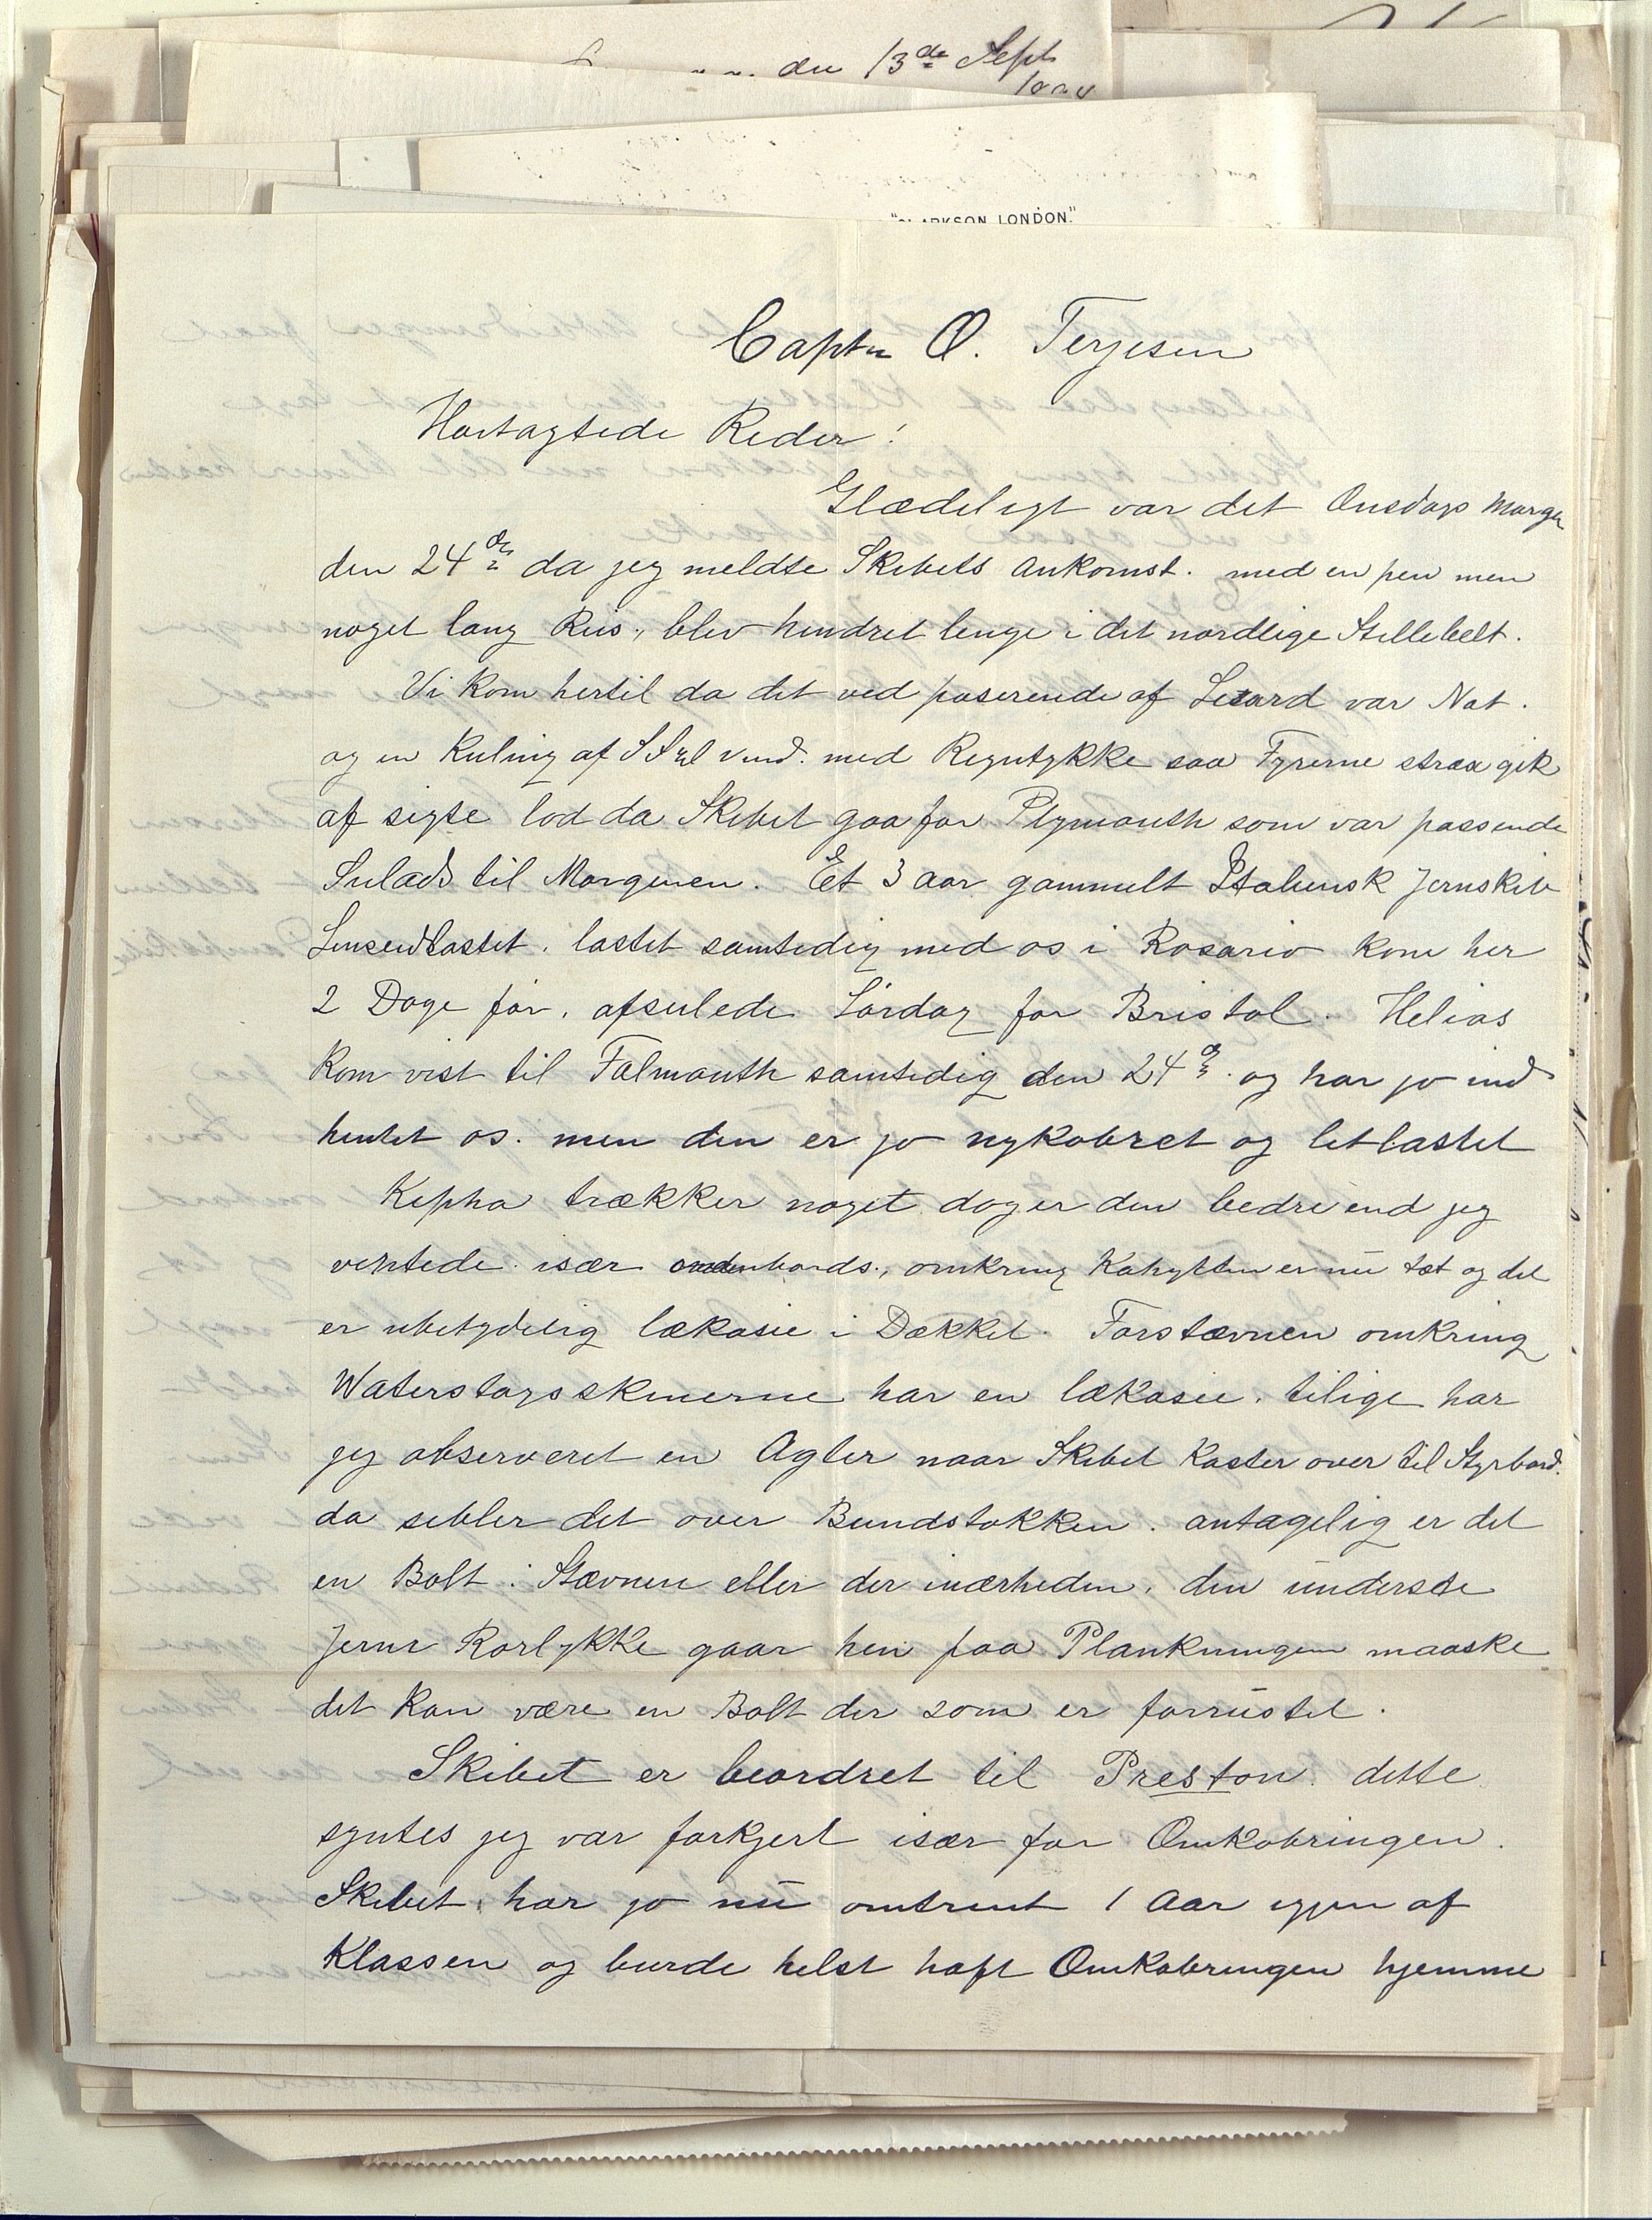 den 13de Sept
"CLARKSON, LONDON."
Captn O. Terjesen
Høitagtede Reder!
Glædeligt var det Onsdags Morgen
den 24de da jeg meldte Skibets Ankomst. med en pen men
noget lang Reis, blev hindret lenge i det nordlige Stillebelt.
Vi kom hertil da det ved paserende af Lezard var Nat.
og en Kuling af SSW vind. med Regntykke saa Fyrerne strax gik
af sigte lod da Skibet gaa for Plymouth som var passende
Seilads til Morgenen. Et 3 aar gammelt Italiensk Jernskib
Linseedlastet. lastet samtidig med os i Rosario kom her
2 Dage før, afseilede Lørdag for Bristol. Helios
kom vist til Falmouth samtidig den 24de og har jo ind
hentet os. men den er jo nykobret og letlastet
Kepha trækker noget dog er den bedre end jeg
ventede. især ombords, omkring Kahytten er nu tæt og det
er ubetydelig lækasie i Dækket. Forstævnen omkring
Waterstagsskinerne har en lækasie. tilige har
jeg observeret en Agter naar Skibet Kaster over til Styrbord.
da sibler det over Bundstokken. antagelig er det
en Bolt i Stævnen eller der inærheden, den underste
Jerns Rorlykke gaar hen paa Plankningen maaske
det kan være en Bolt der som er forrustet.
Skibet er beordret til Preston. dette
syntes jeg var forkjert især for Omkobringen.
Skibet har jo nu omtrent 1 Aar igjen af
Klassen og burde helst haft Omkobringen hjemme